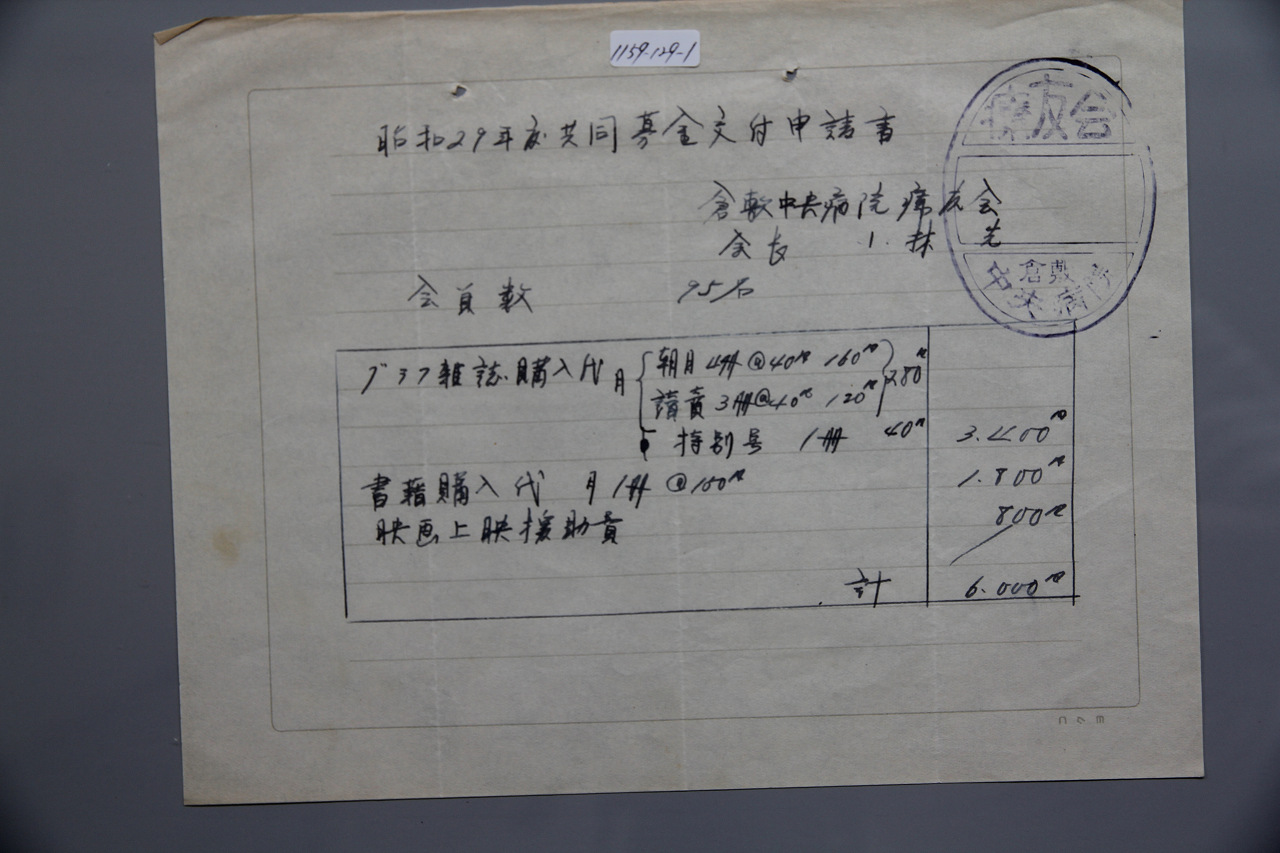 1159-129-1
昭和29年度共同募金交付申請書
倉敷中央病院療友会
会長 小林 光
会員数 95名
グラフ雑誌購入代 月 朝日 4冊 @40円 160円 280円
讀賣 3冊 @40円 120円
特別号 1冊 40円 3.400円
書籍購入代 月1冊 @150円 1.800円
映画上映援助費 800円
計 6.000円
療友会
倉敷
中央病院
コクヨ